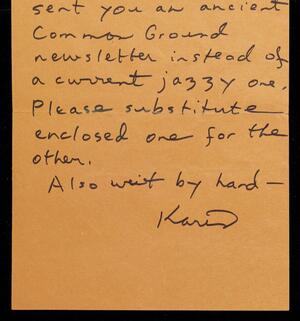 sent you an ancient
Common Ground
newsletter instead of
a current jazzy one.
Please substitute
enclosed one for the
other.
Also writ by hand—
Karen